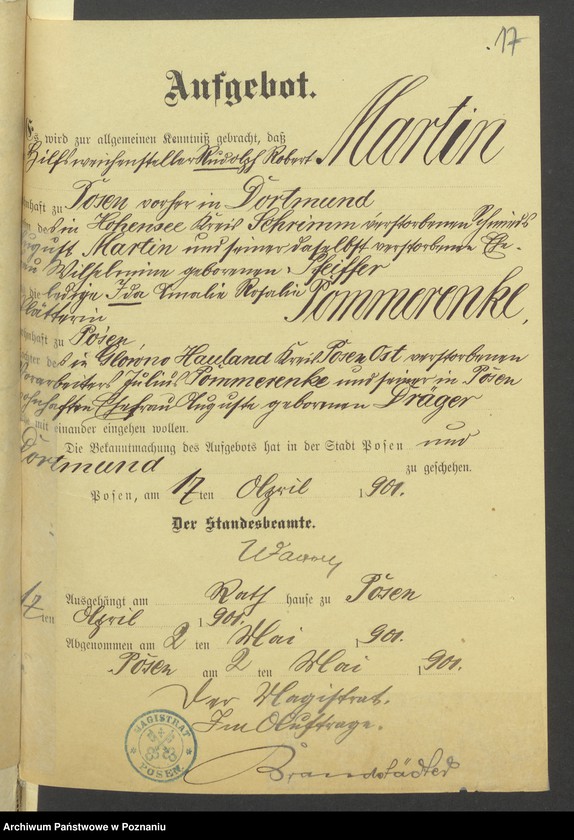 17
Aufgebot.
Es wird zur allgemeinen Kenntniß gebracht, daß
Hilfsweichensteller Rudolph Robert Martin
nhaft zu Posen vorher in Dortmund
des in Hohensee Kreis Schrimm verstorbenen Schmieds
August Martin und seiner daselbst verstorbenen Ehe-
frau Wilhelmine geborenen Pfeiffer
die ledige Ida Amalie Rosalie Pommerenke,
Plätterin
nhaft zu Posen
des in Glowno Hauland Kreis Posen Ost verstorbenen
Vorarbeiters Julius Pommerenke und seiner in Posen
wohnhaften Ehefrau Auguste geborenen Dräger
mit einander eingehen wollen.
Die Bekanntmachung des Aufgebots hat in der Stadt Posen und
Dortmund zu geschehen.
Posen, am 17ten April 1901.
Der Standesbeamte.
Ausgehängt am Rath hause zu Posen
17ten April 1901.
Abgenommen am 2 ten Mai 1901.
Posen am 2 ten Mai 1901.
Der Magistrat.
Im Auftrage.
Brandstädter
MAGISTRAT
* POSEN. *
Archiwum Państwowe w Poznaniu